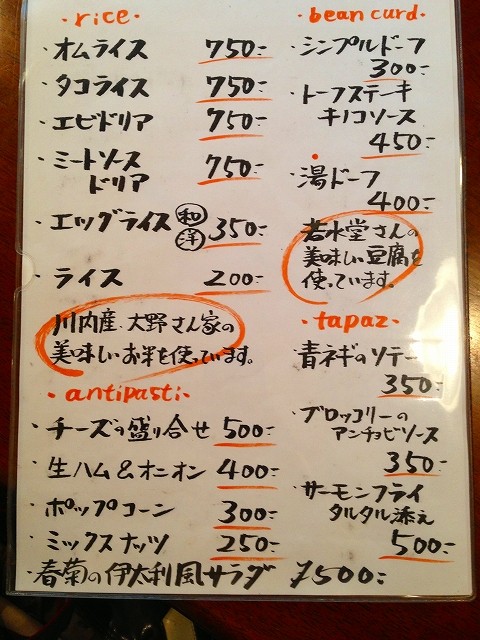 ・rice・
・オムライス 750:-
・タコライス 750:-
・エビドリア 750:-
・ミートソース
ドリア 750:-
・エッグライス 和 洋 350:-
・ライス 200:-
川内産、大野さん家の
美味しいお米を使っています。
・antipasti・
・チーズの盛り合せ 500:-
・生ハム&オニオン 400:-
・ポップコーン 300:-
・ミックスナッツ 250:-
・春菊の伊太利風サラダ 500:-
・bean curd・
・シンプルドーフ
300:-
・トーフステーキ
キノコソース
450:-
・湯ドーフ
400:-
若水堂さんの
美味しい豆腐を
使っています。
・tapaz・
・青ネギのソテー
350:-
・ブロッコリーの
アンチョビソース
350:-
・サーモンフライ
タルタル添え
500:-